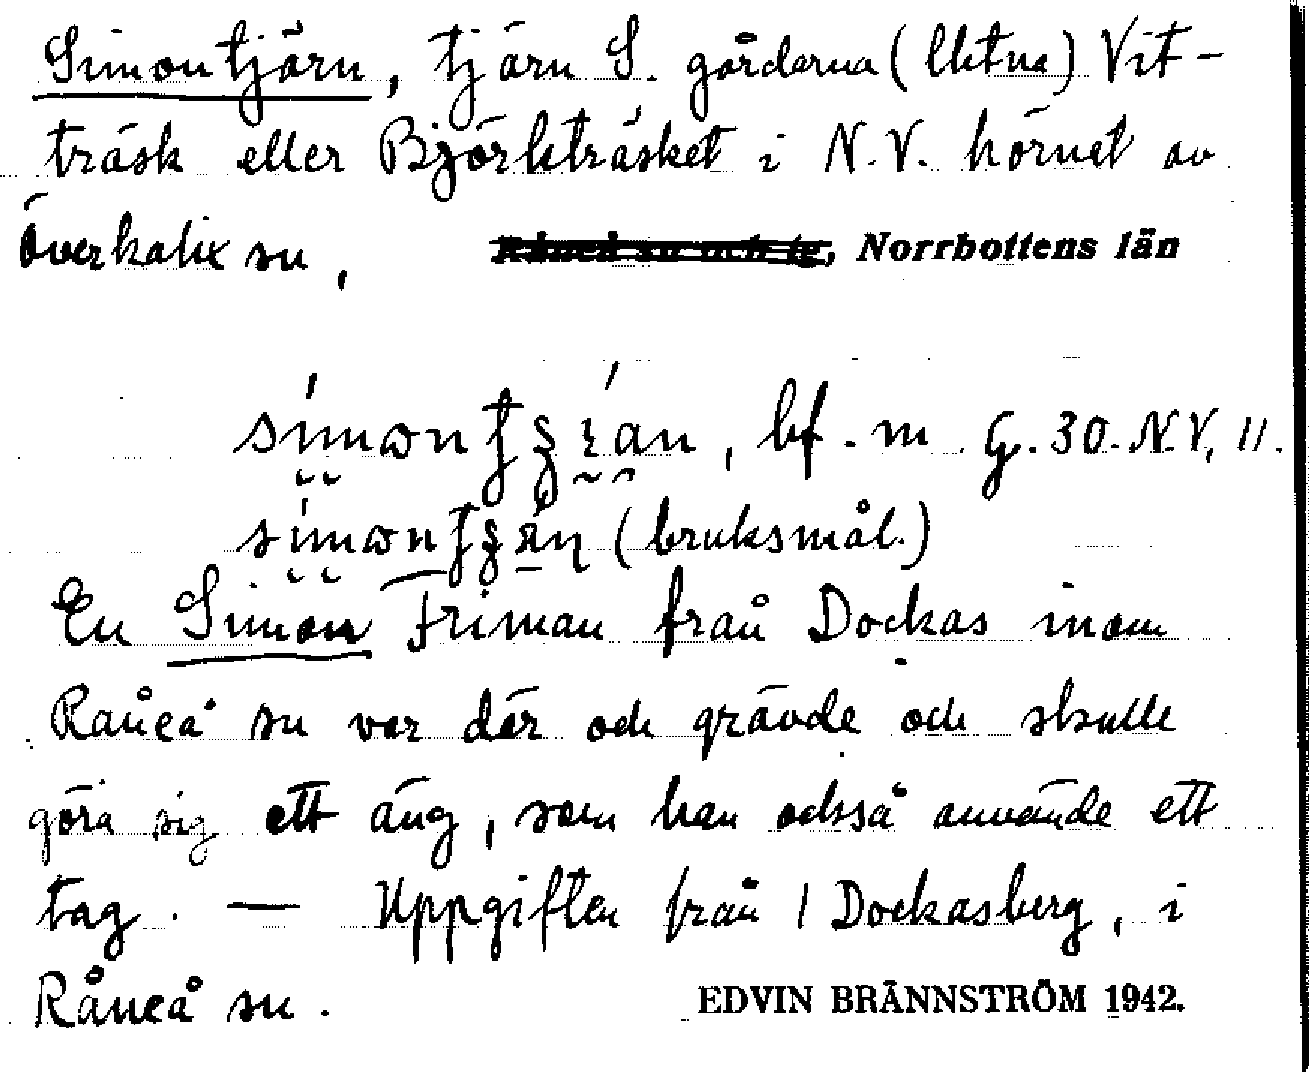 Simontjärn, tjärn S. gårdarna (Uktna) Vit-
träsk eller Björkträsket i N.V. hörnet av
Överkalix sn,
Råneå sn och tg, Norrbottens län
bf. m G. 30. N.V. 11.
(bruksmål.)
En Simon Friman från Dockas inom
Råneå sn var där och grävde och skulle
göra sig ett äng, som han också använde ett
tag. — Uppgiften från 1 Dockasberg, i
Råneå sn.
EDVIN BRÄNNSTRÖM 1942.